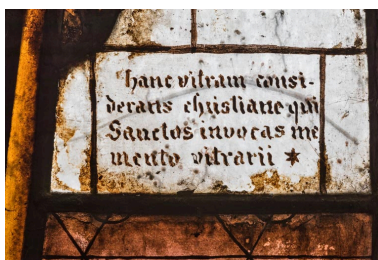 hanc vitram consi-
derans christiane qui
Sanctos invocas me
mento vitrarii *